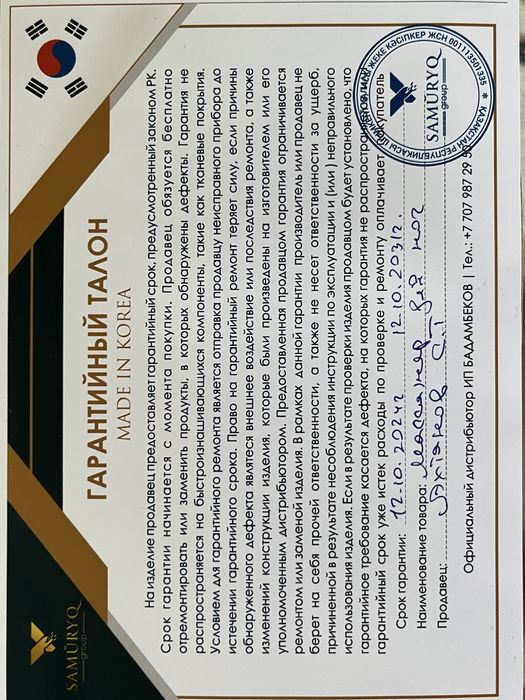 SAMŪRYQ
group
ГАРАНТИЙНЫЙ ТАЛОН
MADE IN KOREA
На изделие продавец предоставляет гарантийный срок, предусмотренный законом РК.
Срок гарантии начинается с момента покупки. Продавец обязуется бесплатно
отремонтировать или заменить продукты, в которых обнаружены дефекты. Гарантия не
распространяется на быстроизнашивающихся компоненты, такие как тканевые покрытия.
Условием для гарантийного ремонта является отправка продавцу неисправного прибора до
истечении гарантийного срока. Право на гарантийный ремонт теряет силу, если причины
обнаруженного дефекта являтеся внешнее воздействие или последствия ремонта, а также
изменений конструкции изделия, которые были произведены на изготовителем или его
уполномоченным дистрибьютором. Предоставленная продавцом гарантия ограничивается
ремонтом или заменой изделия. В рамках данной гарантии производитель или продавец не
берет на себя прочей ответственности, а также не несет ответственности за ущерб,
причиненной в результате несоблюдения инструкции по эксплуатации и (или) неправильного
использования изделия. Если в результате проверки изделия продавцом будет установлено, что
гарантийное требование касается дефекта, на которых гарантия не распространяется
гарантийный срок уже истек расходы по проверке и ремонту оплачивает покупатель
Срок гарантии: 12.10.2024г 12.10.2031г.
Наименование товара: Массажер для ног
Продавец:
Официальный дистрибьютор ИП БАДАМБЕКОВ | Тел.: +7 707 987 29 59
ЖЕКЕ КӘСІПКЕР ЖСН 001113501335 * ҚАЗАҚСТАН РЕСПУБЛИКАСЫ
SAMŪRYQ
group